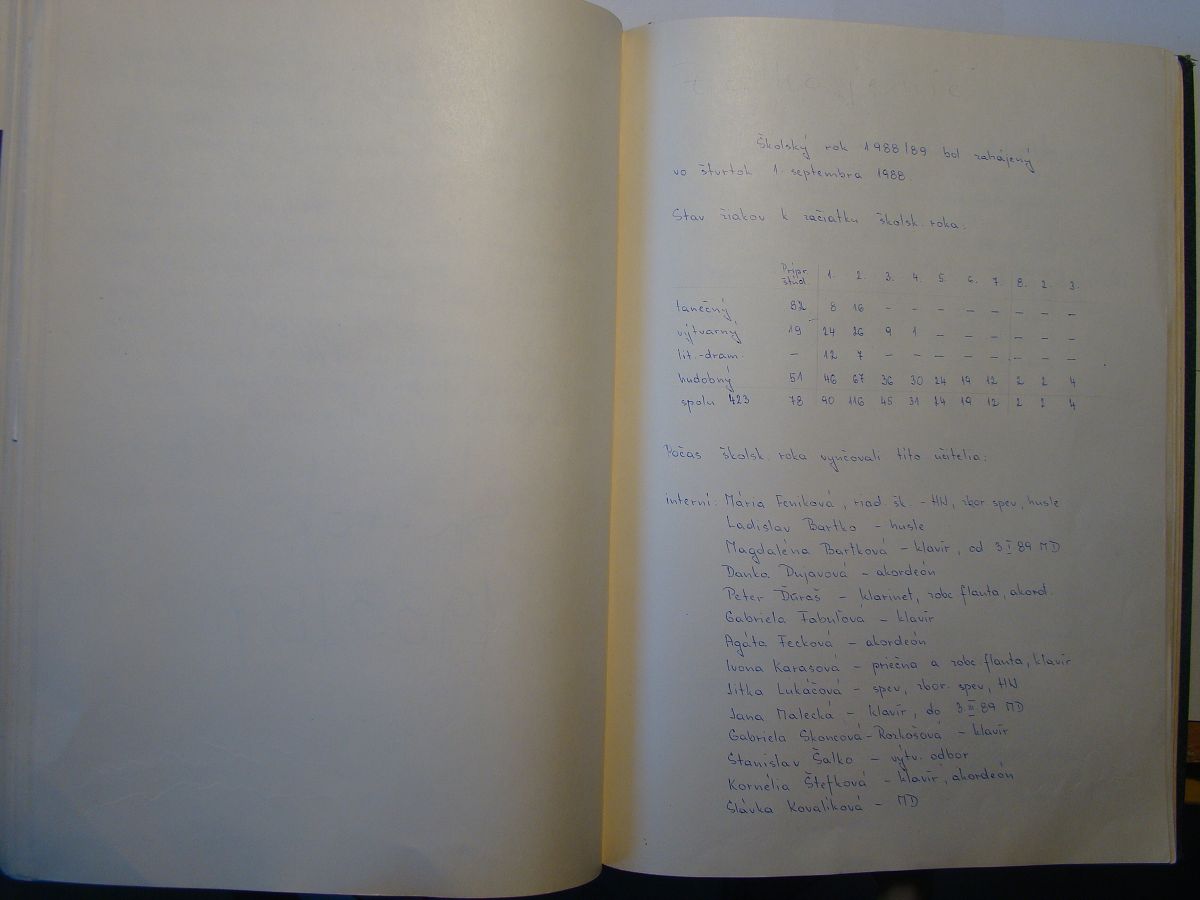 Školský rok 1988/89 bol zahájený
vo štvrtok 1. septembra 1988
Stav žiakov k začiatku školsk. roka:
Prípr. štúd. 1. 2. 3. 4. 5. 6. 7. 8. 2. 3.
tanečný 82 8 16 – – – – – – – –
výtvarný 19 24 26 9 1 – – – – – –
lit.-dram. – 12 7 – – – – – – – –
hudobný 51 46 67 36 30 24 19 12 2 2 4
spolu 423 78 90 116 45 31 24 19 12 2 2 4
Počas školsk. roka vyučovali títo učitelia:
interní: Mária Feníková, riad. šk. – HN, zbor spev, husle
Ladislav Bartko – husle
Magdaléna Bartková – klavír, od 3.I 89 MD
Danka Dujavová – akordeón
Peter Ďuraš – klarinet, zobc flauta, akord.
Gabriela Fabuľová – klavír
Agáta Fecková – akordeón
Ivona Karasová – priečna a zobc flauta, klavír
Jitka Lukáčová – spev, zbor. spev, HN
Jana Malecká – klavír, do 3.III 89 MD
Gabriela Skoncová-Rozkošová – klavír
Stanislav Šalko – výtv. odbor
Kornélia Štefková – klavír, akordeón
Slávka Kovalíková – MD